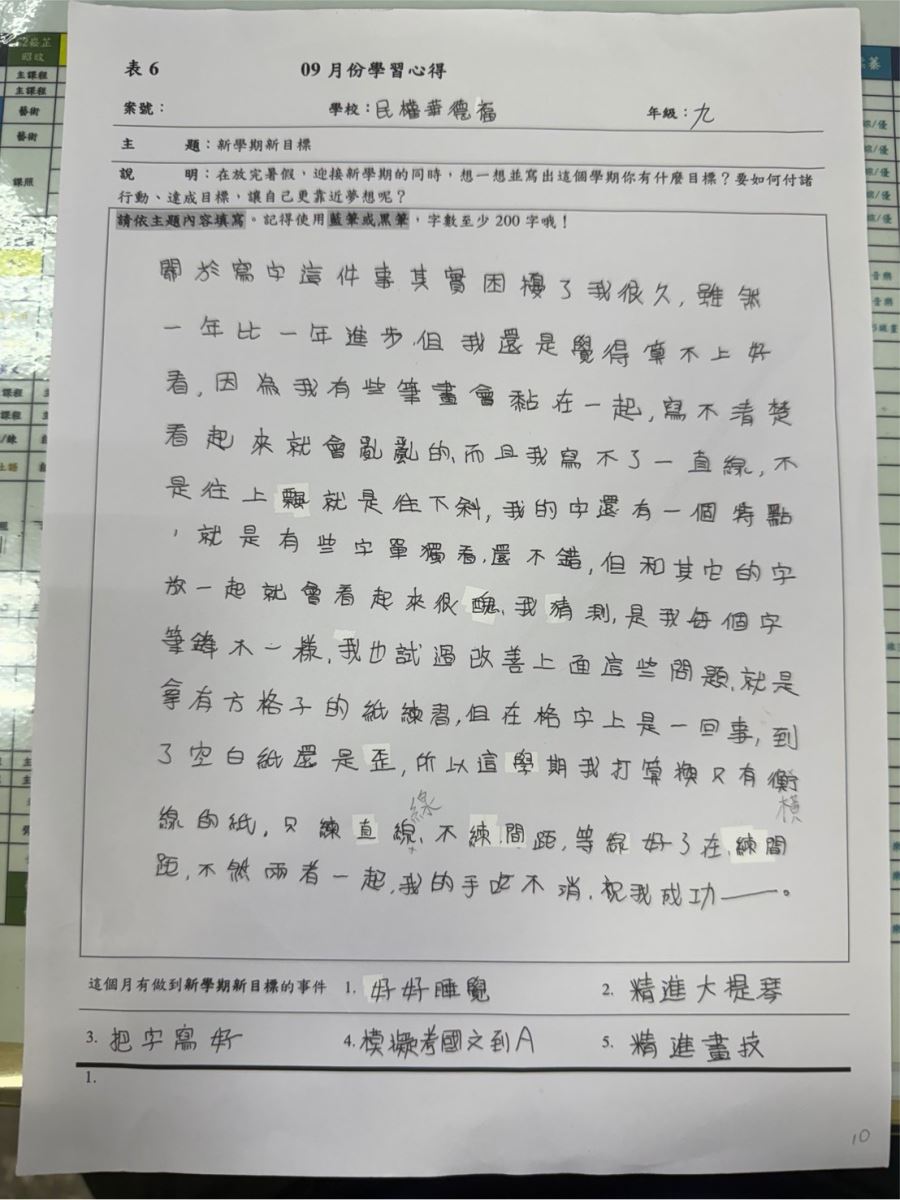 表 6 09 月份學習心得
案號： 學校：民權華德福 年級：九
主 題：新學期新目標
說 明：在放完暑假，迎接新學期的同時，想一想並寫出這個學期你有什麼目標？要如何付諸
行動、達成目標，讓自己更靠近夢想呢？
請依主題內容填寫。記得使用藍筆或黑筆，字數至少 200 字哦！
關於寫字這件事其實困擾了我很久，雖然
一年比一年進步，但我還是覺得算不上好
看，因為我有些筆畫會黏在一起，寫不清楚
看起來就會亂亂的，而且我寫不了一直線，不
是往上飄就是往下斜，我的字還有一個特點
，就是有些字單獨看，還不錯，但和其它的字
放一起就會看起來很醜，我猜測，是我每個字
筆鋒不一樣，我也試過改善上面這些問題，就是
拿有方格子的紙練習，但在格字上是一回事，到
了空白紙還是歪，所以這學期我打算換只有衡
橫
線
線的紙，只練直線，不練間距，等線好了在練間
距，不然兩者一起，我的手吃不消，祝我成功——。
這個月有做到新學期新目標的事件 1. 好好睡覺 2. 精進大提琴
3. 把字寫好 4. 模擬考國文到A 5. 精進畫技
1.
10
主課程
主課程
藝術
藝術
課照